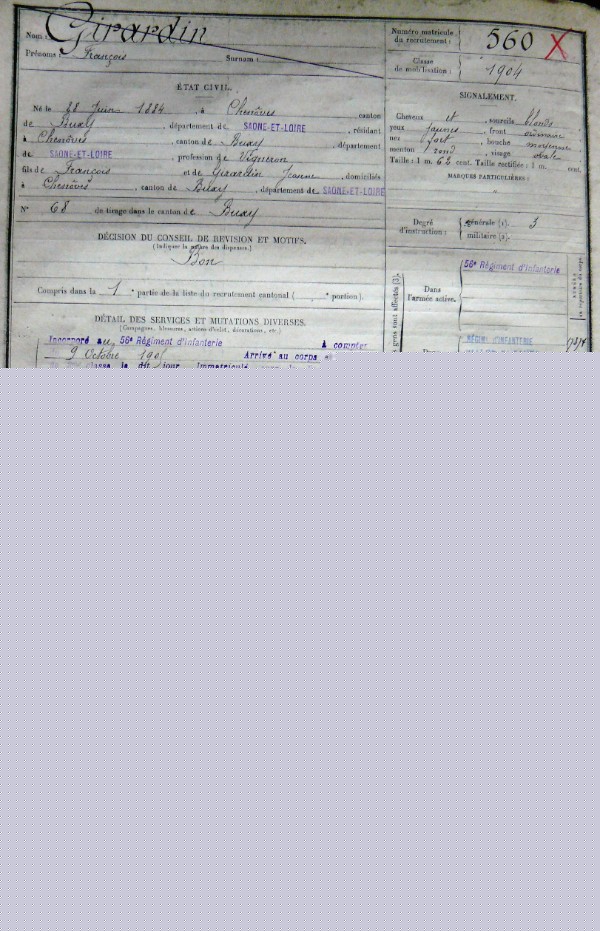 Nom : Girardin
Prénoms : François Surnom :
ÉTAT CIVIL.
Né le 28 Juin 1884, à Chenôves, canton
de Buxy, département de SAONE-ET-LOIRE, résidant
à Chenôves, canton de Buxy, département
de SAONE-ET-LOIRE, profession de Vigneron
fils de François et de Girardin Jeanne, domiciliés
à Chenôves, canton de Buxy, département de SAONE-ET-LOIRE
N° 68 de tirage dans le canton de Buxy
DÉCISION DU CONSEIL DE REVISION ET MOTIFS.
(Indiquer la nature des dispenses.)
Bon
Compris dans la 1e partie de la liste du recrutement cantonal ( e portion).
DÉTAIL DES SERVICES ET MUTATIONS DIVERSES.
(Campagnes, blessures, actions d'éclat, décorations, etc.)
Incorporé au 56e Régiment d'infanterie à compter
9 Octobre 190 Arrivé au corps
classe le dit jour Immatriculé sous le
Numéro matricule du recrutement : 560 X
Classe de mobilisation : 1904
SIGNALEMENT.
Cheveux et, sourcils blonds
yeux jaunes, front ordinaire
nez fort, bouche moyenne
menton rond, visage ovale
Taille : 1 m. 68 cent. Taille rectifiée : 1 m. cent.
MARQUES PARTICULIÈRES :
Degré d'instruction : générale (1). 3
militaire (2).
56e Régiment d'infanterie
Dans l'armée active.
RÉGIMT D'INFANTERIE